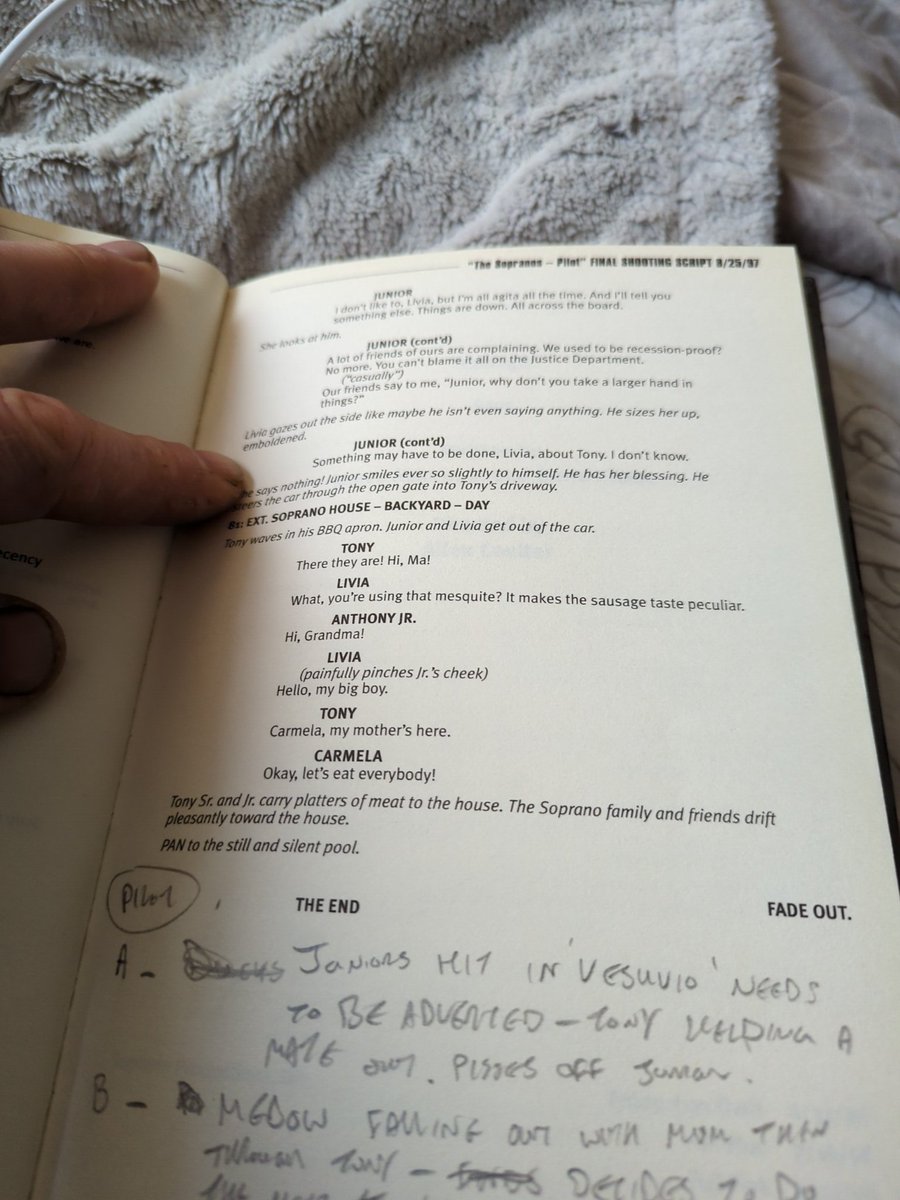 "The Sopranos – Pilot" FINAL SHOOTING SCRIPT 8/25/97
JUNIOR
I don't like to, Livia, but I'm all agita all the time. And I'll tell you
something else. Things are down. All across the board.
She looks at him.
JUNIOR (cont'd)
A lot of friends of ours are complaining. We used to be recession-proof?
No more. You can't blame it all on the Justice Department.
("casually")
Our friends say to me, "Junior, why don't you take a larger hand in
things?"
Livia gazes out the side like maybe he isn't even saying anything. He sizes her up,
emboldened.
JUNIOR (cont'd)
Something may have to be done, Livia, about Tony. I don't know.
says nothing! Junior smiles ever so slightly to himself. He has her blessing. He
the car through the open gate into Tony's driveway.
EXT. SOPRANO HOUSE – BACKYARD – DAY
Tony waves in his BBQ apron. Junior and Livia get out of the car.
TONY
There they are! Hi, Ma!
LIVIA
What, you're using that mesquite? It makes the sausage taste peculiar.
ANTHONY JR.
Hi, Grandma!
LIVIA
(painfully pinches Jr.'s cheek)
Hello, my big boy.
TONY
Carmela, my mother's here.
CARMELA
Okay, let's eat everybody!
Tony Sr. and Jr. carry platters of meat to the house. The Soprano family and friends drift
pleasantly toward the house.
PAN to the still and silent pool.
PILOT
THE END FADE OUT.
A – JUNIORS HIT IN 'VESUVIO' NEEDS
TO BE ADVERTED – TONY HELPING A
MATE OUT. PISSES OFF JUNIOR.
B – MEDOW FALLING OUT WITH MUM THAN
TONY – DECIDES TO DO